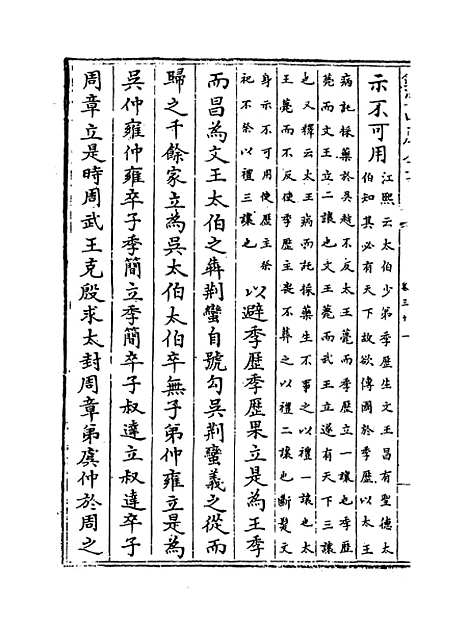 示不可用
江熙云太伯少弟季歴生文王昌有聖徳太
伯知其必有天下故欲傳國於季歴以太王
病託採藥於吳越不反太王薨而季歴立一讓也季歴
薨而文王立二讓也文王薨而武王立遂有天下三讓
也又釋云太王病而託採藥生不事之以禮一讓也太
王薨而不反使季歴主喪不葬之以禮二讓也斷髪文
身示不可用使歴主祭
祀不祭以禮三讓也
以避季歴季歴果立是為王季
而昌為文王太伯之犇荆蠻自號勾吳荆蠻義之從而
歸之千餘家立為吳太伯太伯卒無子弟仲雍立是為
吳仲雍仲雍卒子季簡立季簡卒子叔達立叔達卒子
周章立是時周武王克殷求太封周章弟虞仲於周之
卷三十一